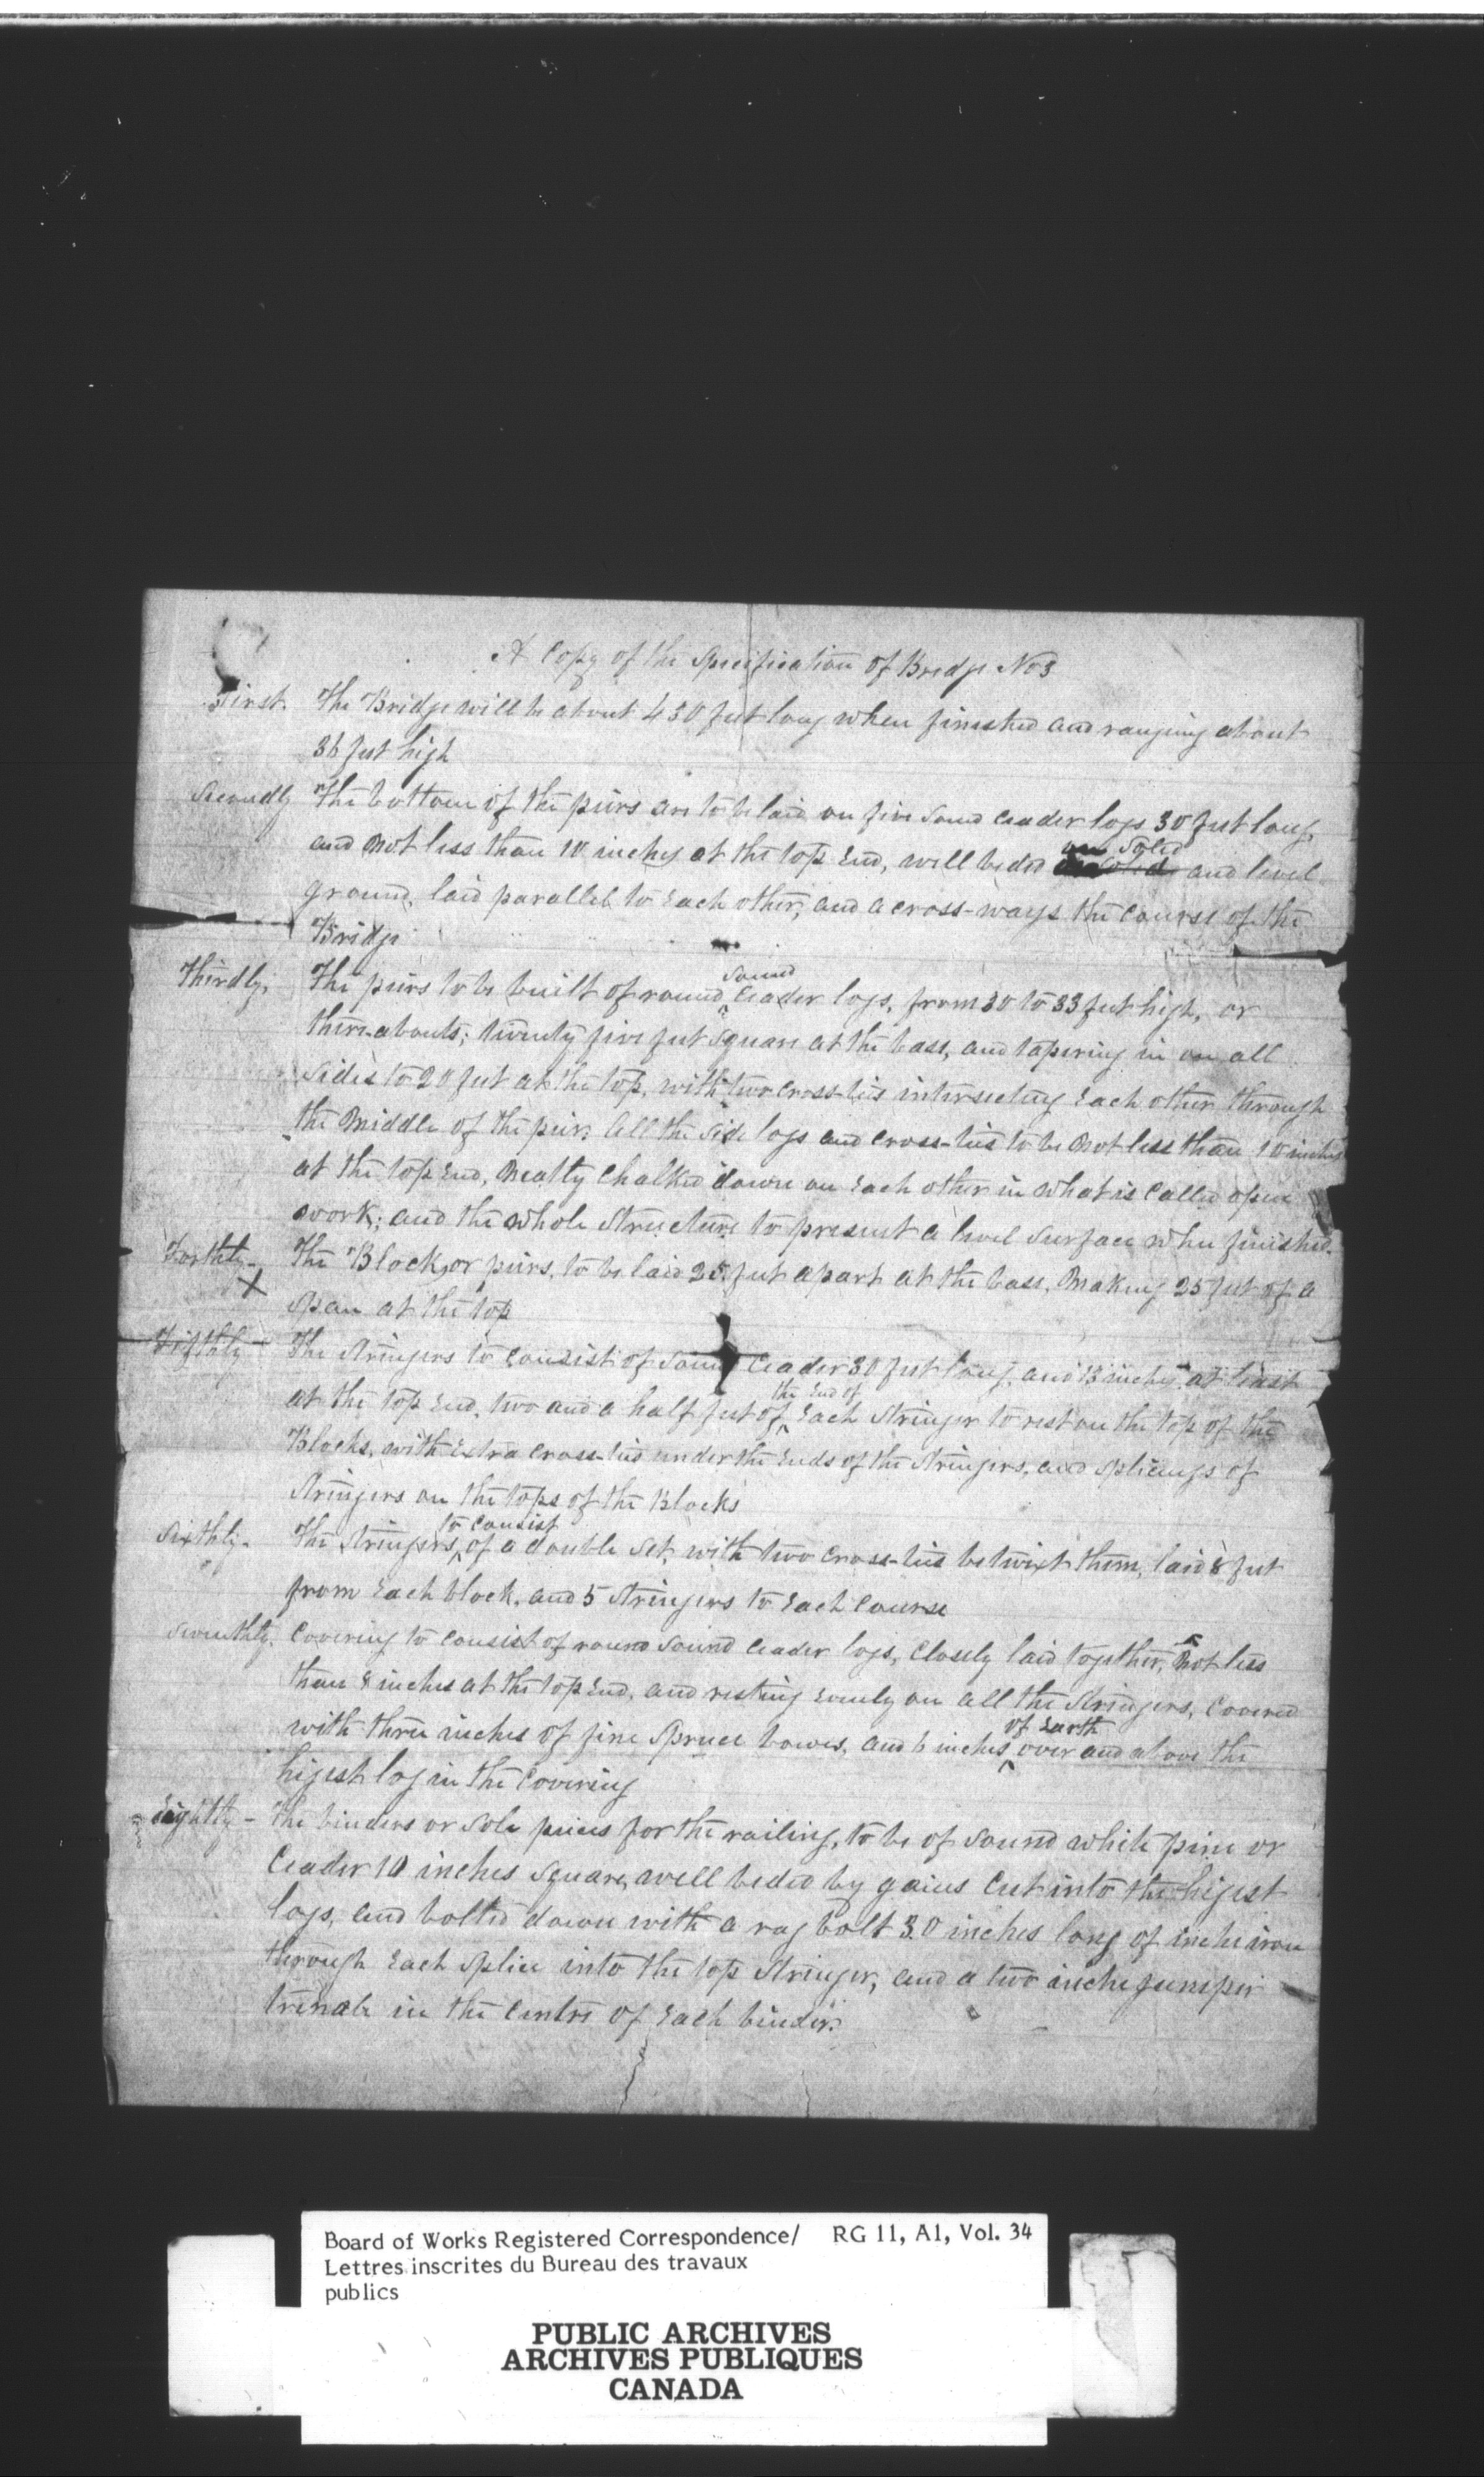 A Copy of the Specification of Bridge No 3
First. The Bridge will be about 430 feet long when finished and ranging about
36 feet high
Secondly The bottom of the piers are to be laid on five sound ceader logs 30 feet long,
and not less than 10 inches at the top end, well beded on Solid and level
ground, laid parallel to each other, and across-ways the course of the
Bridge
Thirdly, The piers to be built of round sound ceader logs, from 30 to 33 feet high, or
there-abouts; twenty five feet square at the bass, and tapering in on all
sides to 20 feet at the top, with two cross-ties intersecting each other through
the middle of the pier. All the side logs and cross-ties to be not less than 10 inches
at the top end, neatly chalked down on each other in what is called open
work; and the whole structure to present a level surface when finished.
Forthly - The Block, or piers, to be laid 25 feet apart at the bass, making 25 feet of a
X
span at the top
Fifthly - The stringers to consist of sound ceader 30 feet long, and 13 inches at least
at the top end, two and a half feet of the end of each stringer to rest on the top of the
Blocks, with extra cross-ties under the ends of the stringers, and splicings of
stringers on the tops of the Blocks
Sixthly - The stringers to consist of a double set, with two cross-ties betwixt them, laid 8 feet
from each block, and 5 stringers to each course
Seventhly. Covering to consist of round sound ceader logs, closely laid together, not less
than 8 inches at the top end, and resting evenly on all the stringers, covered
with three inches of fine spruce bowes, and 6 inches of earth over and above the
higest log in the covering
Eightly - The binders or sole pieces for the railing, to be of sound white pine or
ceader 10 inches square, well beded by gaines cut into the higest
logs, and bolted down with a rag bolt 30 inches long of inche iron
through each splice into the top stringer, and a two inche juniper
trenale in the centre of each binder.
Board of Works Registered Correspondence/ RG 11, A1, Vol. 34
Lettres inscrites du Bureau des travaux
publics
PUBLIC ARCHIVES
ARCHIVES PUBLIQUES
CANADA